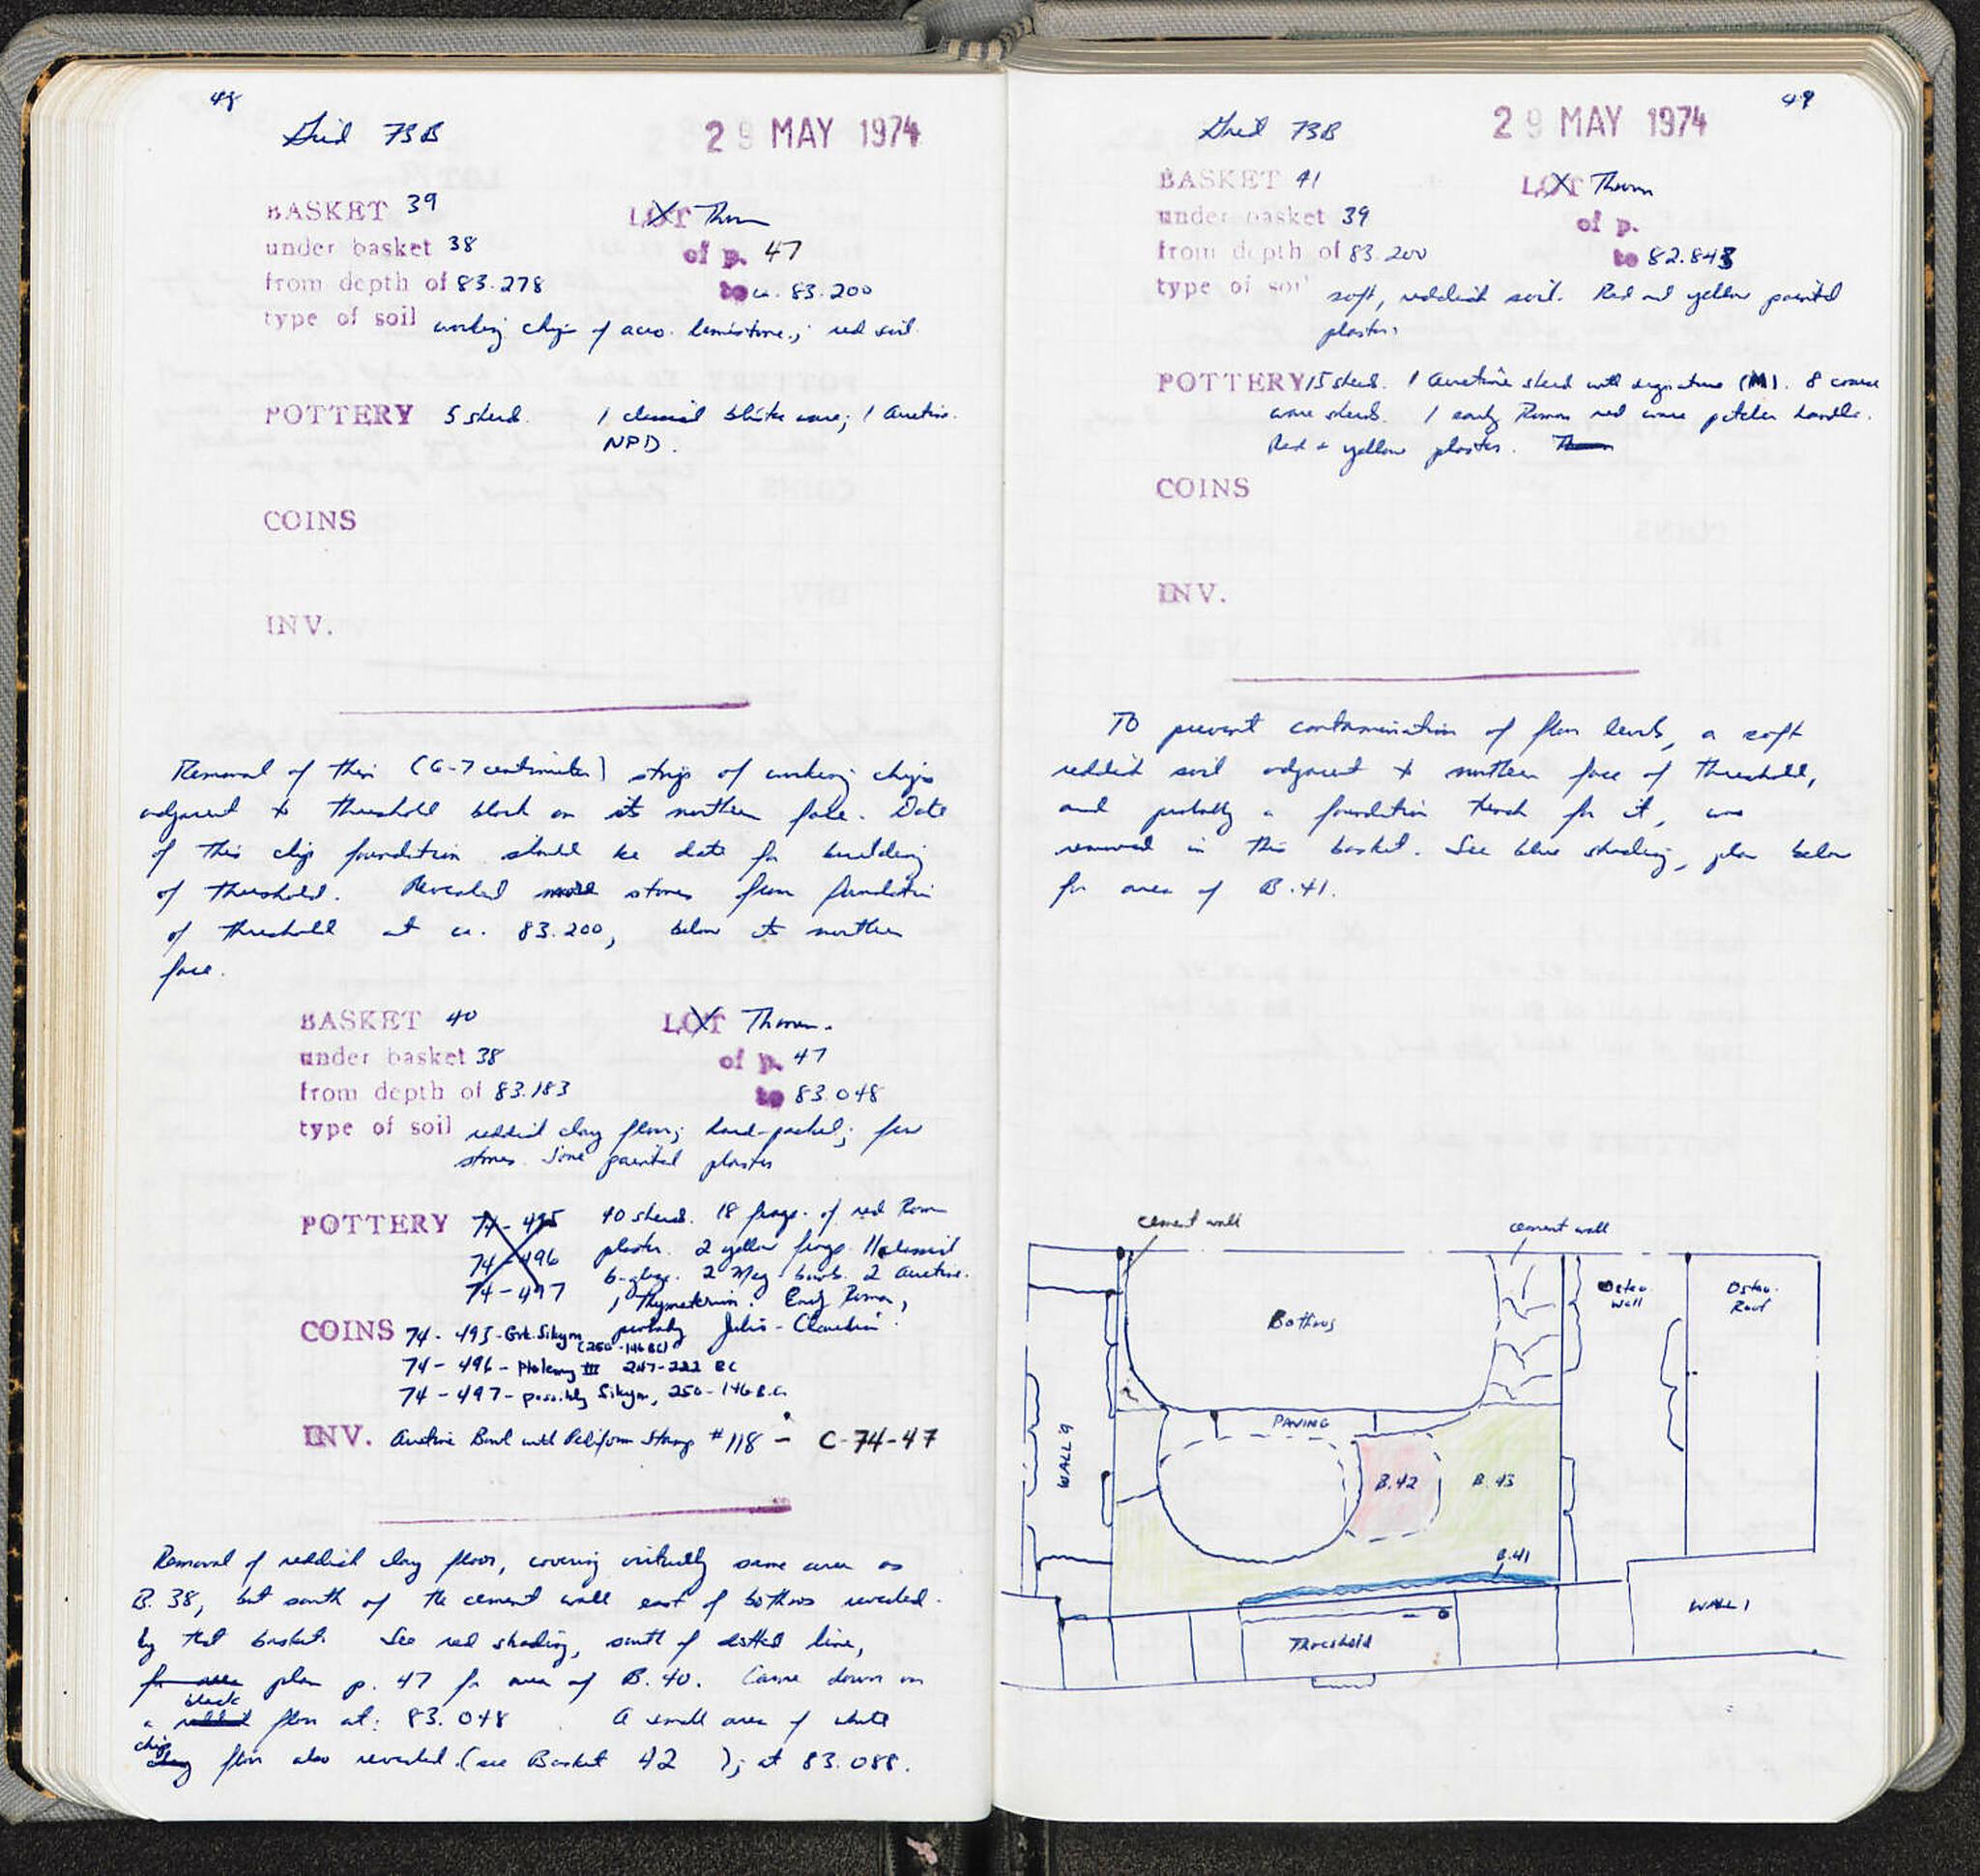 48
Grid 73B
29 MAY 1974
BASKET 39 LOT Thorn
under basket 38 of p. 47
from depth of 83.278 to ca. 83.200
type of soil working chips of acro. limestone; red soil.
POTTERY 5 sherds. 1 classical blister ware; 1 Arretine.
NPD.
COINS
INV.
Removal of thin (6-7 centimeter) strip of working chips
adjacent to threshold block on its northern face. Date
of this chip foundation should be date for building
of threshold. Revealed more stones from foundation
of threshold at ca. 83.200, below its northern
face.
BASKET 40 LOT Thorn.
under basket 38 of p. 47
from depth of 83.183 to 83.048
type of soil reddish clay floor; hard-packed; few
stones. Some painted plaster
POTTERY 74-495 40 sherds. 18 frags. of red Roman
74-496 plaster. 2 yellow frags. 11 classical
74-497 b-glaze. 2 Meg. bowls. 2 Arretine.
1 Thymaterion. Early Roman,
COINS 74-495-Grk. Sikyon probably Julio-Claudian.
(250-146 BC)
74-496-Ptolemy III 247-222 BC
74-497-possibly Sikyon, 250-146 B.C.
INV. Arretine Bowl with Peliform Stamp #118 - C-74-47
Removal of reddish clay floor, covering virtually same area as
B. 38, but south of the cement wall east of bothros revealed
by that basket. See red shading, south of dotted line,
for area plan p. 47 for area of B. 40. Came down on
black
a reddish floor at: 83.048 . A small area of white
chip
clay floor also revealed (see Basket 42 ); at 83.088.
49
Grid 73B
29 MAY 1974
BASKET 41 LOT Thorn
under basket 39 of p.
from depth of 83.200 to 82.843
type of soil soft, reddish soil. Red and yellow painted
plaster.
POTTERY 15 sherds. 1 Arretine sherd with signature (M). 8 coarse
ware sherds. 1 early Roman red ware pitcher handle.
Red + yellow plaster.
COINS
INV.
To prevent contamination of floor levels, a soft
reddish soil adjacent to northern face of threshold,
and probably a foundation trench for it, was
removed in this basket. See blue shading, plan below
for area of B.41.
cement wall
cement wall
Bothros
Osteo. Wall
Osteo. Roof
PAVING
WALL 9
B.42
B.43
B.41
WALL 1
Threshold